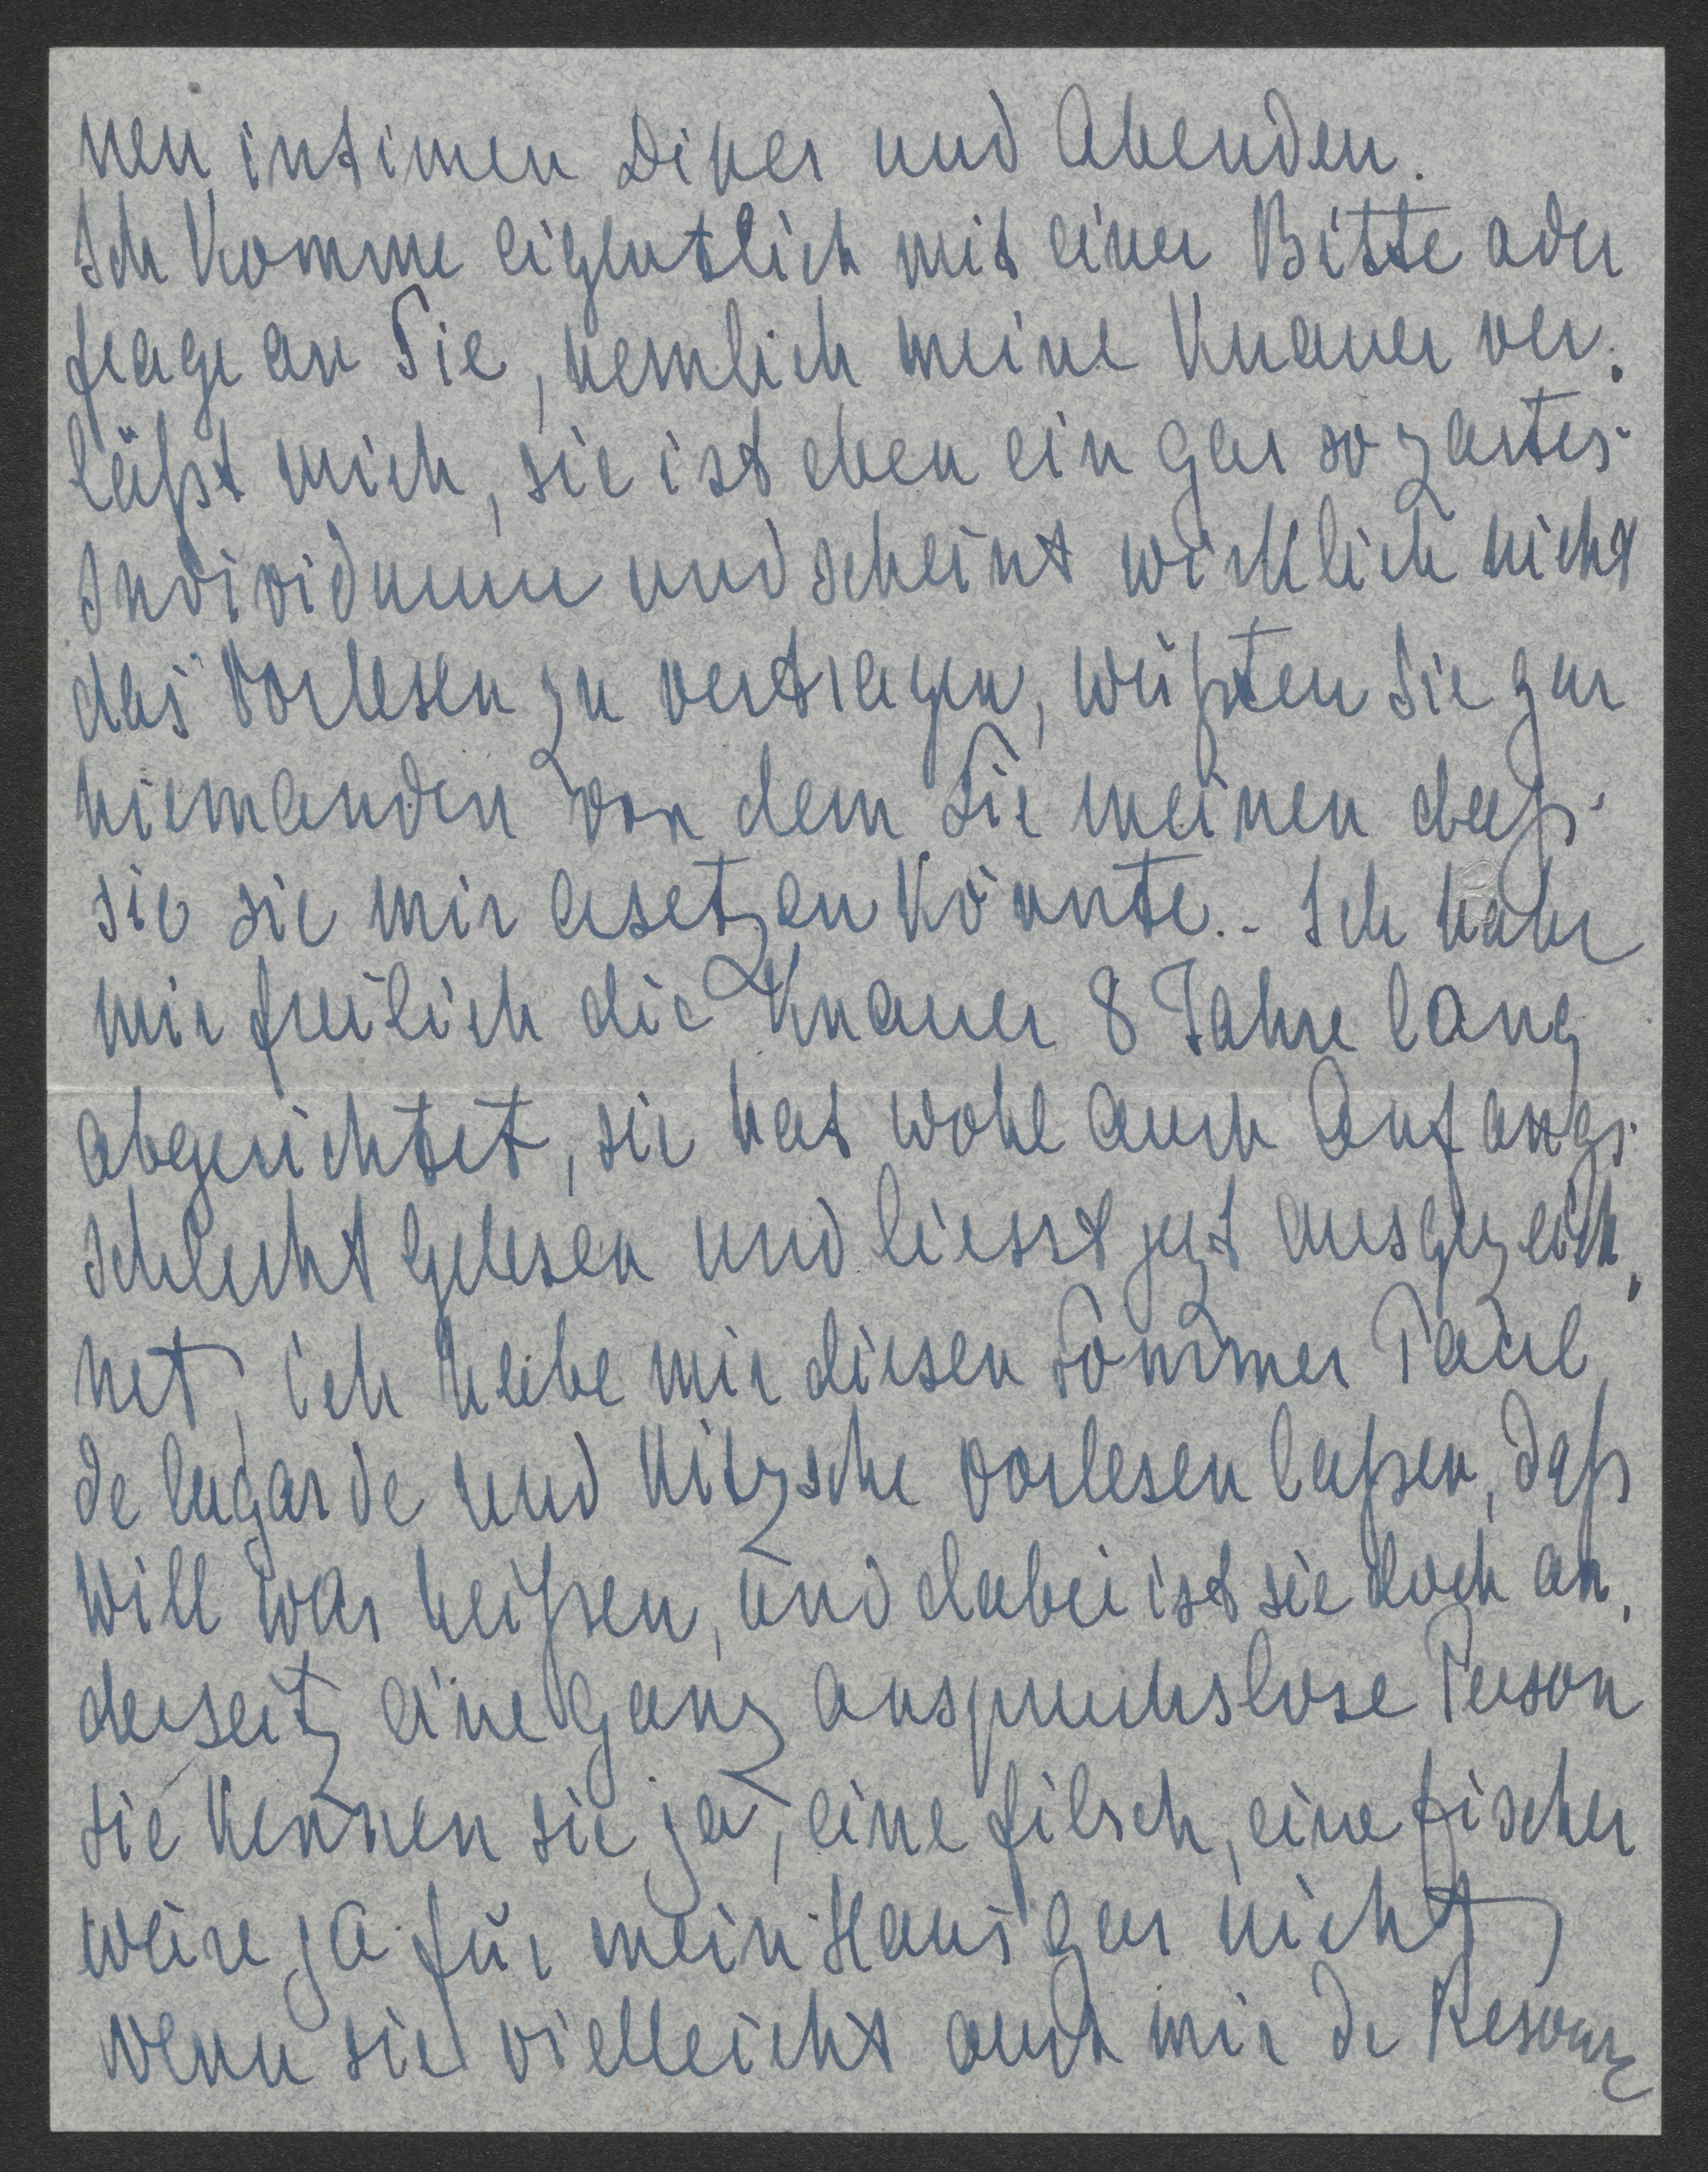 nen intimen Diner und Abenden.
Ich komme eigentlich mit einer Bitte oder
frage an Sie, nemlich meine Knauer ver.
läßt mich, sie ist eben ein gar so zartes
Individuum und scheint wirklich nicht
das Vorlesen zu vertragen, wüßten Sie gar
niemanden von dem Sie meinen daß
sie sie mir ersetzen könnte.. Ich habe
mir freilich die Knauer 8 Jahre lang
abgerichtet, sie hat wohl auch Anfangs
schlecht gelesen und liesst jezt ausgezeich.
net, ich habe mir diesen Sommer Paul
de lagarde und Nitzsche vorlesen laßen, daß
will was heißen, und dabei ist sie doch an.
derseitz eine ganz anspruchslose Person
sie kennen sie ja, eine filsch, eine fischer
wäre ja für mein Haus gar nicht,
wenn sie vielleicht auch mir de